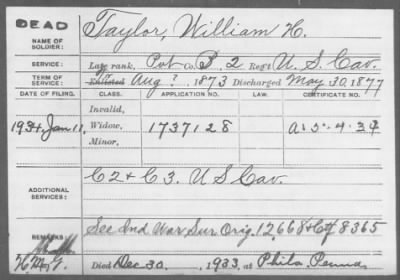 DEAD
NAME OF SOLDIER: Taylor, William H.
SERVICE: Late rank, Pvt Co. B, 2 Reg't U. S. Cav.
TERM OF SERVICE: Enlisted Aug ? 1873 Discharged May 30, 1877
DATE OF FILING. CLASS. APPLICATION NO. LAW. CERTIFICATE NO.
Invalid,
1934, Jan. 11, Widow, 1737128 a 5-4-34
Minor,
ADDITIONAL SERVICES: C2 + C3. U S Cav.
REMARKS: See Ind War Sur Orig. 12,668 & Ctf 8365
Died Dec 30, 1933, at Phila, Penna